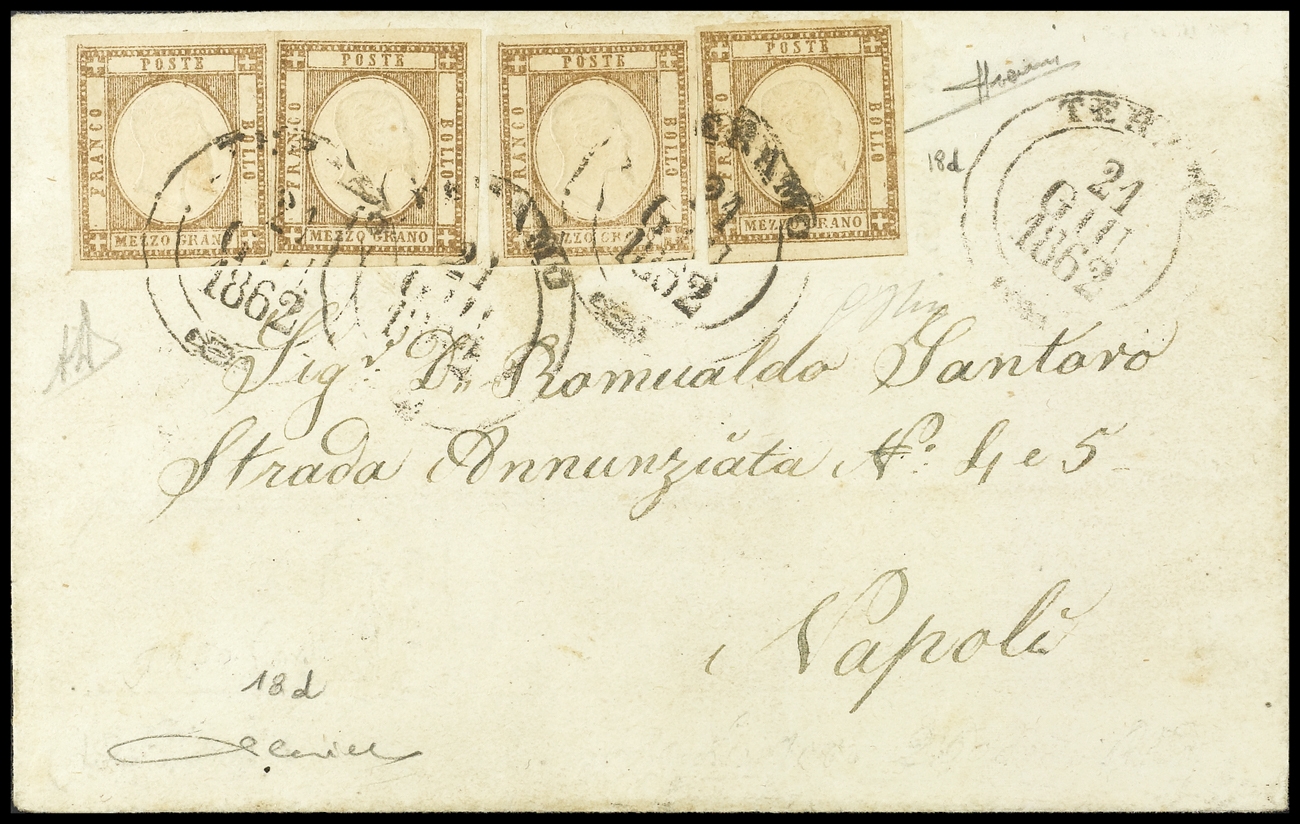 POSTE
FRANCO
BOLLO
MEZZO GRANO
POSTE
FRANCO
BOLLO
MEZZO GRANO
POSTE
FRANCO
BOLLO
MEZZO GRANO
POSTE
FRANCO
BOLLO
MEZZO GRANO
TERAMO
21
GIU
1862
21
GIU
1862
21
GIU
21
GIU
1862
18d
Sigr. Dn Romualdo Santoro
Strada Annunziäta No. 4 e 5
Napoli
18d